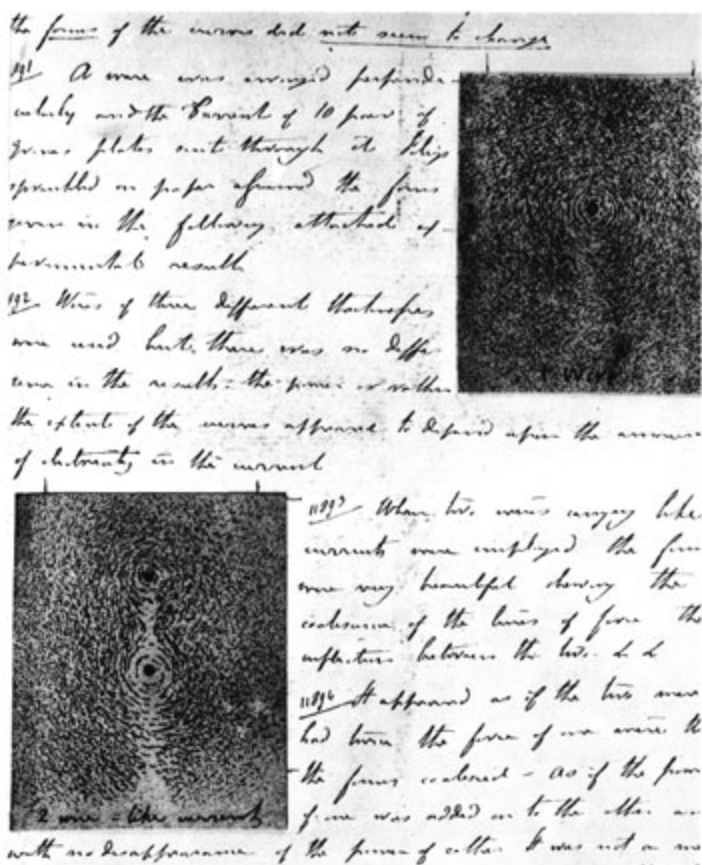 the forms of the curves did not seem to change
191 A wire was arranged perpendi-
cularly and the Current of 10 pair of
plates sent through it filings
sprinkled on paper assumed the forms
given in the following attached ex-
perimental results
192 Wires of three different thicknesses
were used but there was no diffe
rence in the results - the power or rather
the extent of the curves appeared to depend upon the amount
of electricity in the current
1 Wire
11893 When two wires carrying like
currents were employed the forms
were very beautiful shewing the
coalescence of the lines of force the
inflection between the two. &c &c
11894 It appeared as if the two wires
had twice the force of one wire
the forms coalesced - as if the power
2 wires - like currents
was added on to the other an
with no disappearance of the power of either It was not a